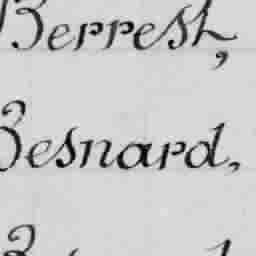 Berresh,
Besnard,